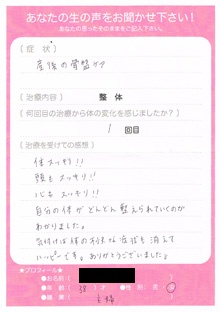 あなたの生の声をお聞かせ下さい!
あなたの思ったそのままをご記入下さい。
〔症 状〕
産後の骨盤ケア
〔治療内容〕 整 体
〔何回目の治療から体の変化を感じましたか?〕
1 回目
〔治療を受けての感想〕
体スッキリ!!
頭もスッキリ!!
心もスッキリ!!
自分の体がどんどん整えられていくのが
わかりました。
気付けば体の不快な症状も消えて
ハッピーです。ありがとうございました。
★プロフィール★
●お名前(
●年 齢( 38 )才 ●性 別( 男 ・ 女 )
●職 業( 主婦